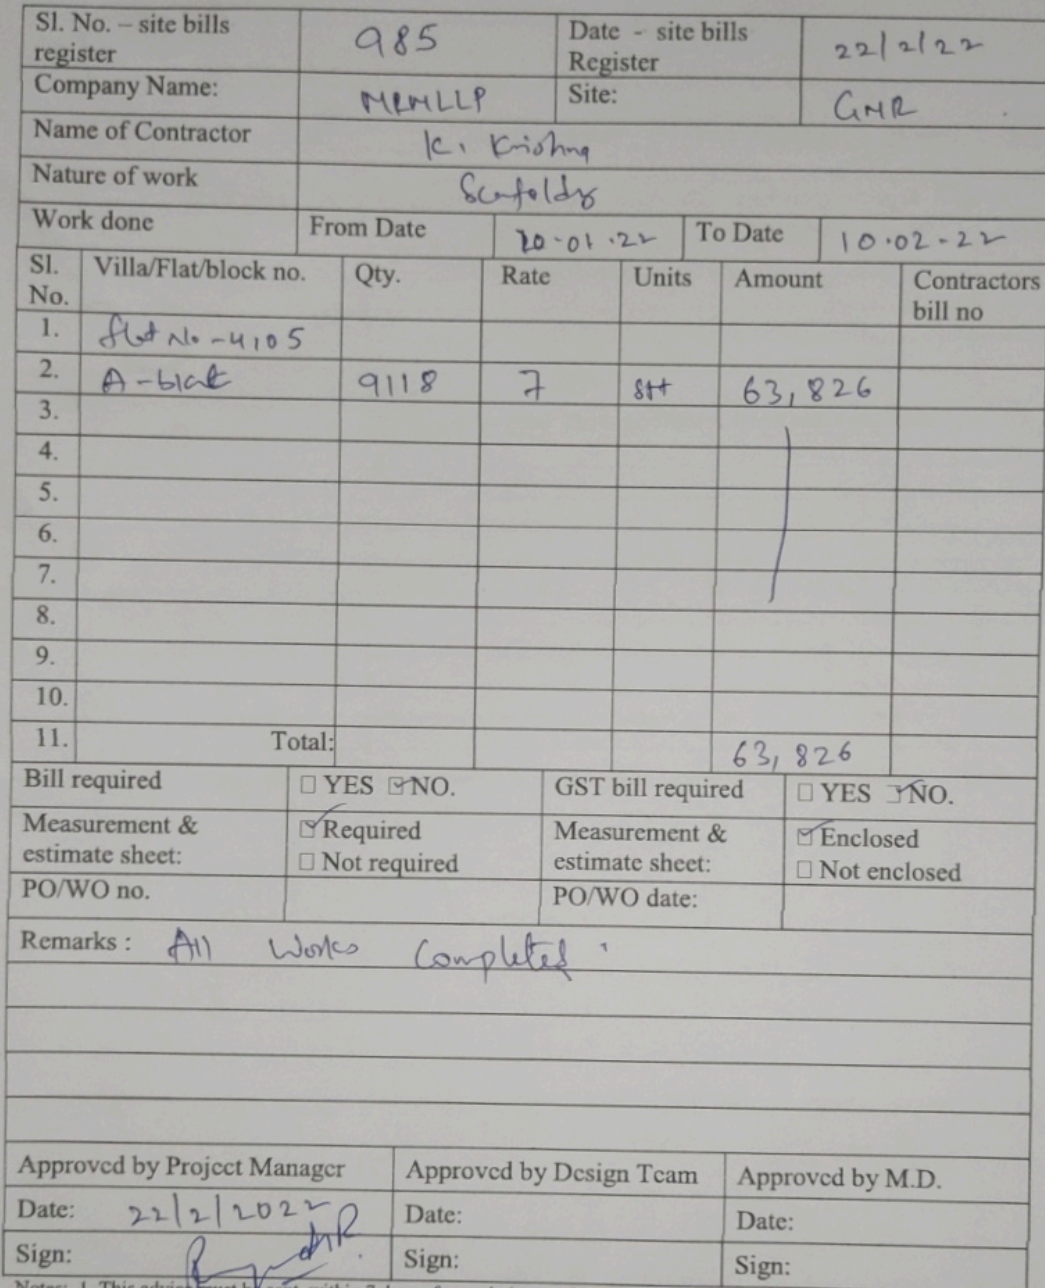 Sl. No. – site bills register 985 Date - site bills Register 22/2/22
Company Name: MRMLLP Site: GMR
Name of Contractor K. Krishna
Nature of work
Work done From Date 10-01-22 To Date 10-02-22
Sl. No. Villa/Flat/block no. Qty. Rate Units Amount Contractors bill no
1. flat No - 4105
2. A-block 9118 7 sft 63,826
3.
4.
5.
6.
7.
8.
9.
10.
11. Total: 63,826
Bill required □ YES ☑ NO. GST bill required □ YES ☑ NO.
Measurement & estimate sheet: ☑ Required □ Not required Measurement & estimate sheet: ☑ Enclosed □ Not enclosed
PO/WO no. PO/WO date:
Remarks : All Works Completed
Approved by Project Manager Approved by Design Team Approved by M.D.
Date: 22/2/2022 Date: Date:
Sign: Sign: Sign: